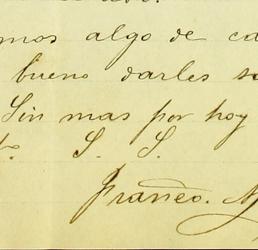 mos algo de ca
bueno darles
Sin mas por hoy
S. S.
Franco. M